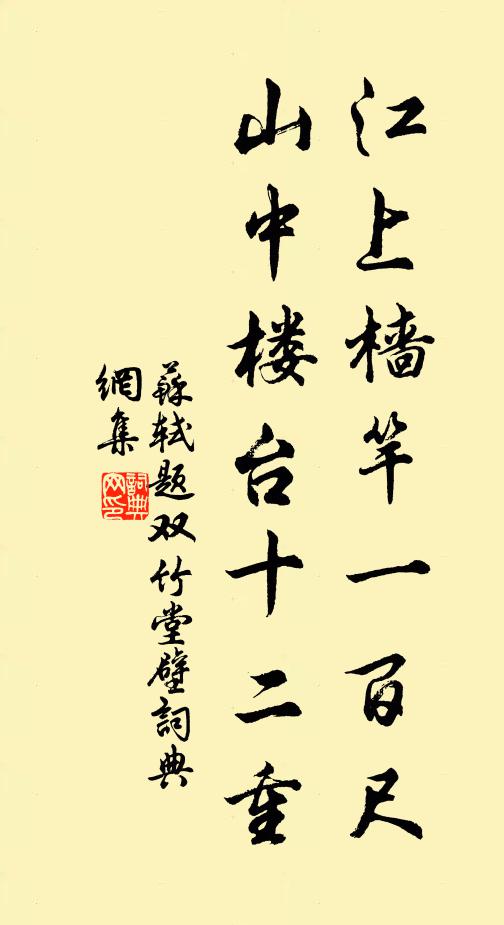 江上樯竿一百尺
山中楼台十二重
蘇轼题双竹堂壁詞典
網集
詞典
网印